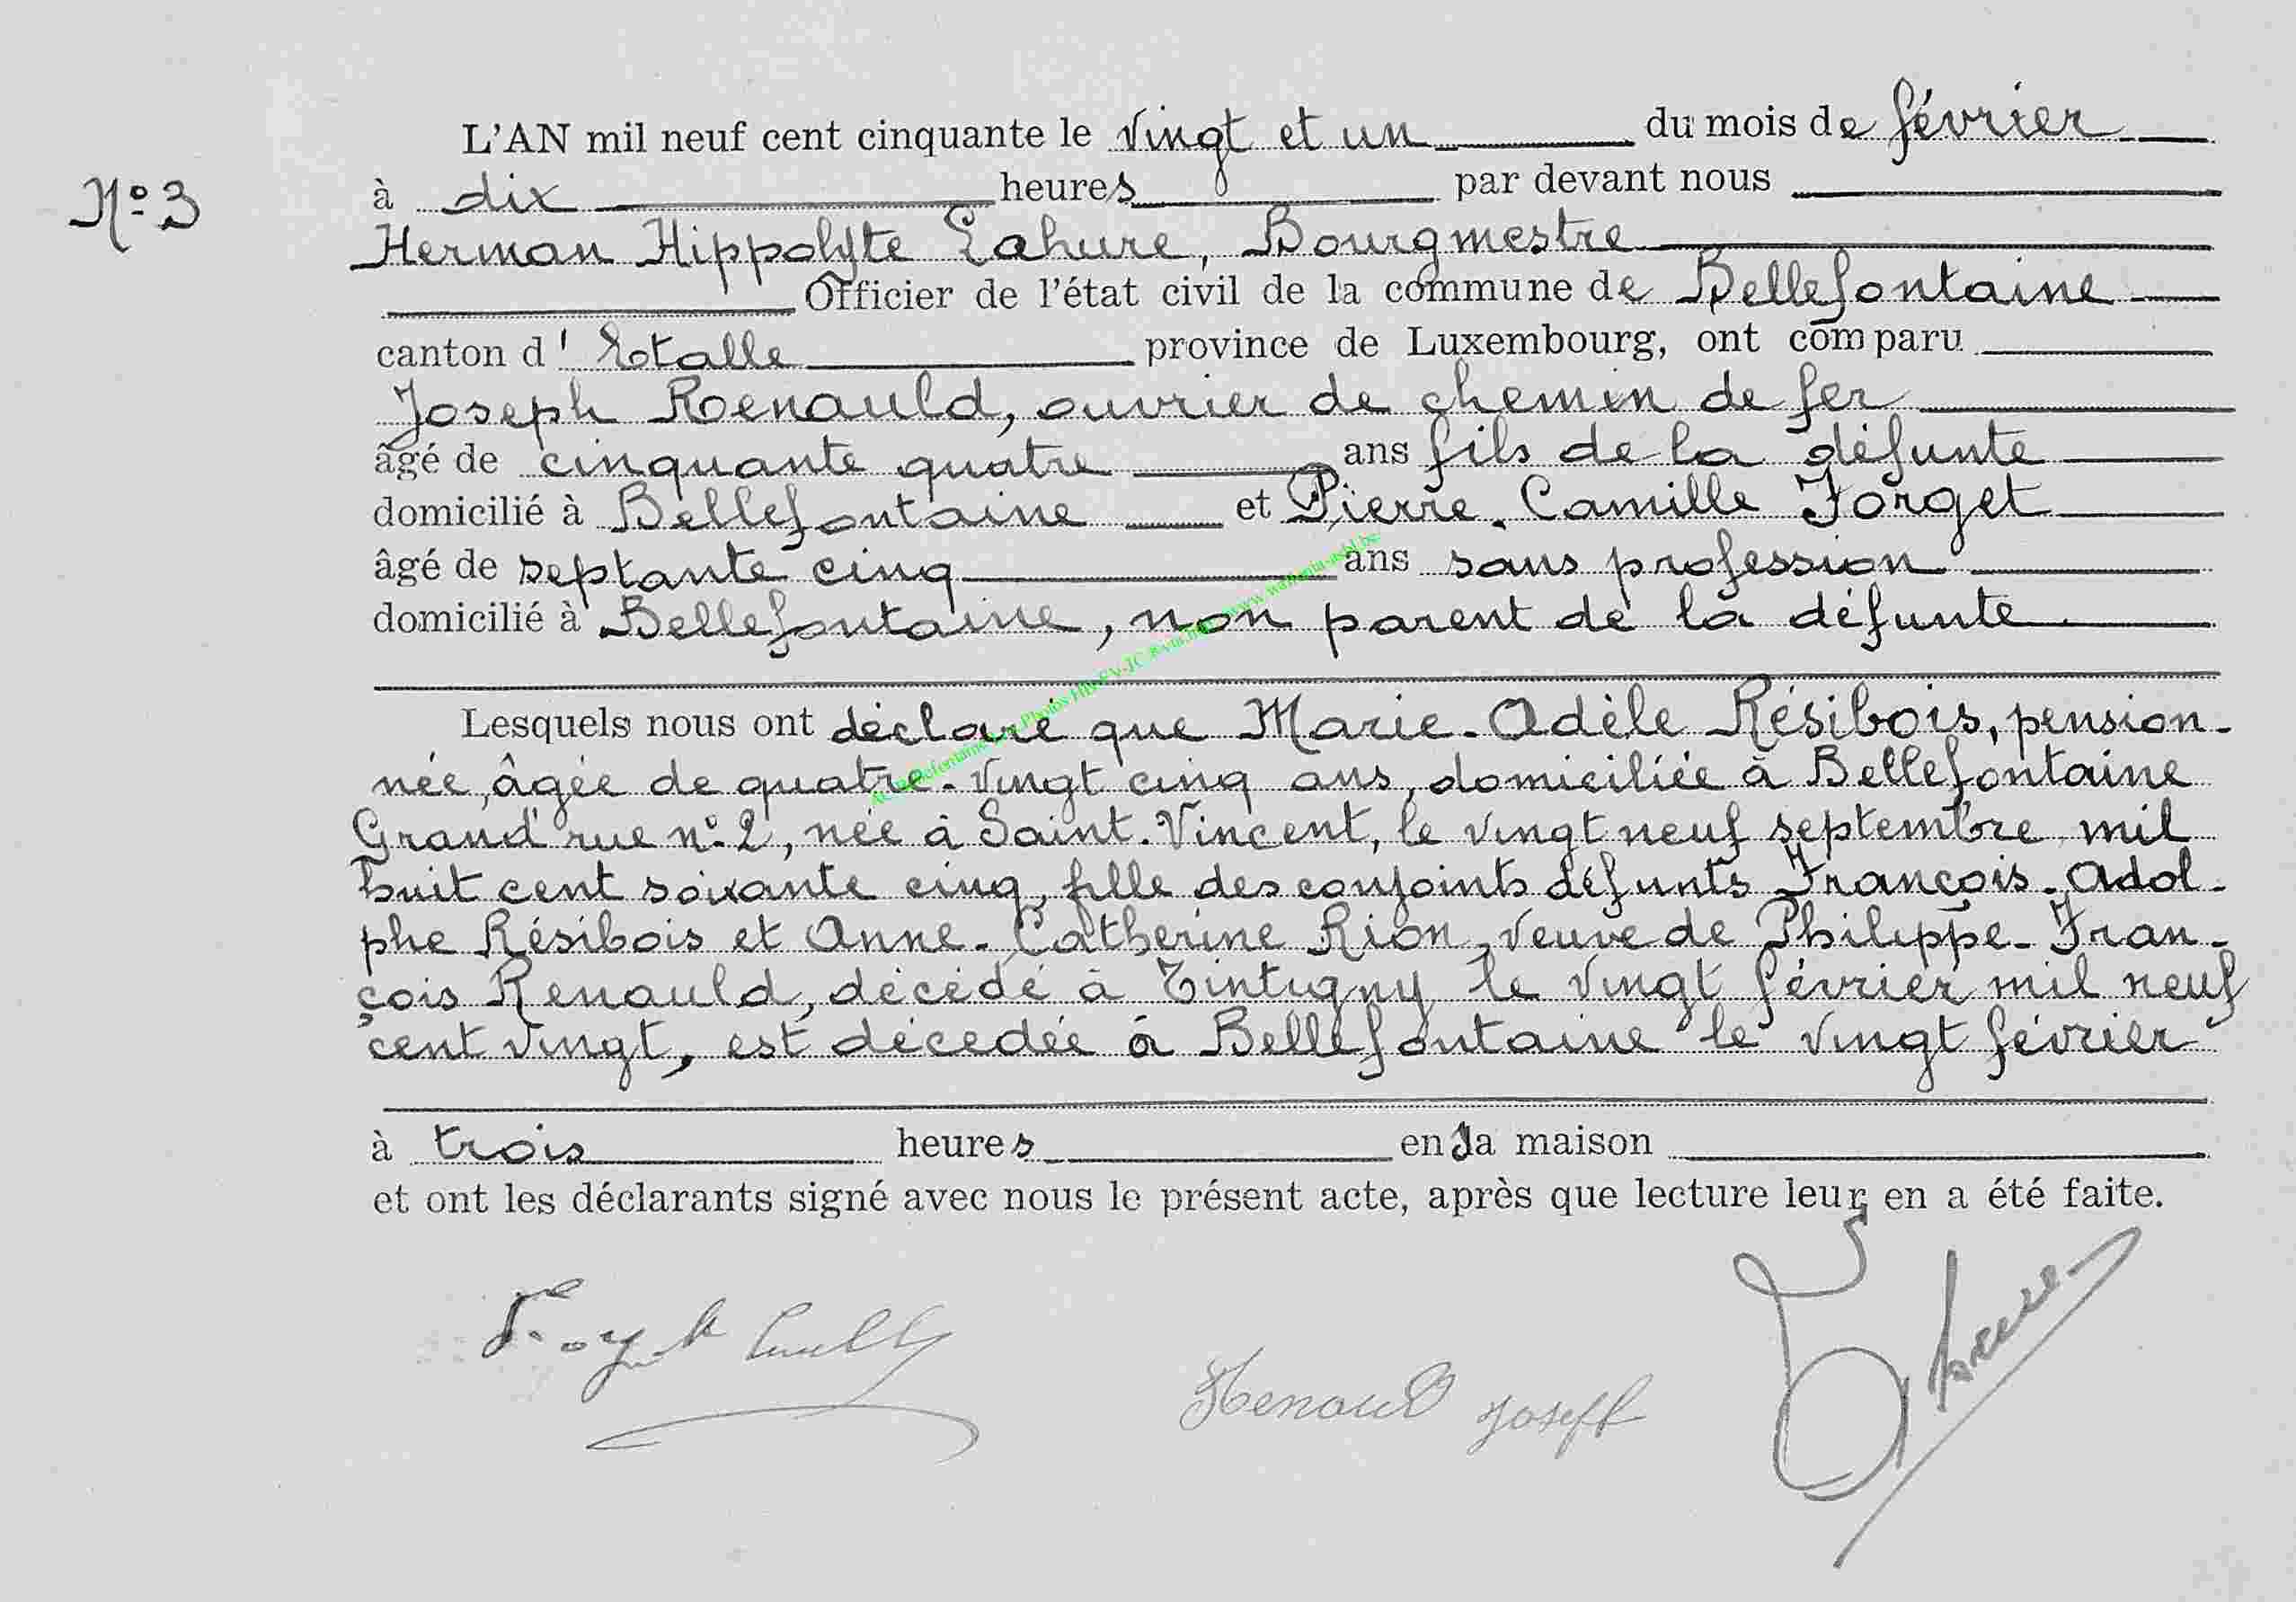 L'AN mil neuf cent cinquante le vingt et un du mois de février
N° 3
à dix heures par devant nous
Herman Hippolyte Lahure, Bourgmestre
Officier de l'état civil de la commune de Bellefontaine
canton d' Etalle province de Luxembourg, ont comparu
Joseph Renauld, ouvrier de chemin de fer
âgé de cinquante quatre ans fils de la défunte
domicilié à Bellefontaine et Pierre-Camille Forget
âgé de septante cinq ans sans profession
domicilié à Bellefontaine, non parent de la défunte
Lesquels nous ont déclaré que Marie-Adèle Résibois, pension-
née, âgée de quatre-vingt cinq ans, domiciliée à Bellefontaine
Grand'rue n° 2, née à Saint-Vincent, le vingt neuf septembre mil
huit cent soixante cinq, fille des conjoints défunts François-Adol-
phe Résibois et Anne-Catherine Rion, veuve de Philippe-Fran-
çois Renauld, décédé à Tintigny le vingt février mil neuf
cent vingt, est décédée à Bellefontaine le vingt février
à trois heures en sa maison
et ont les déclarants signé avec nous le présent acte, après que lecture leur en a été faite.
Forget Camille
Renauld Joseph
Lahure